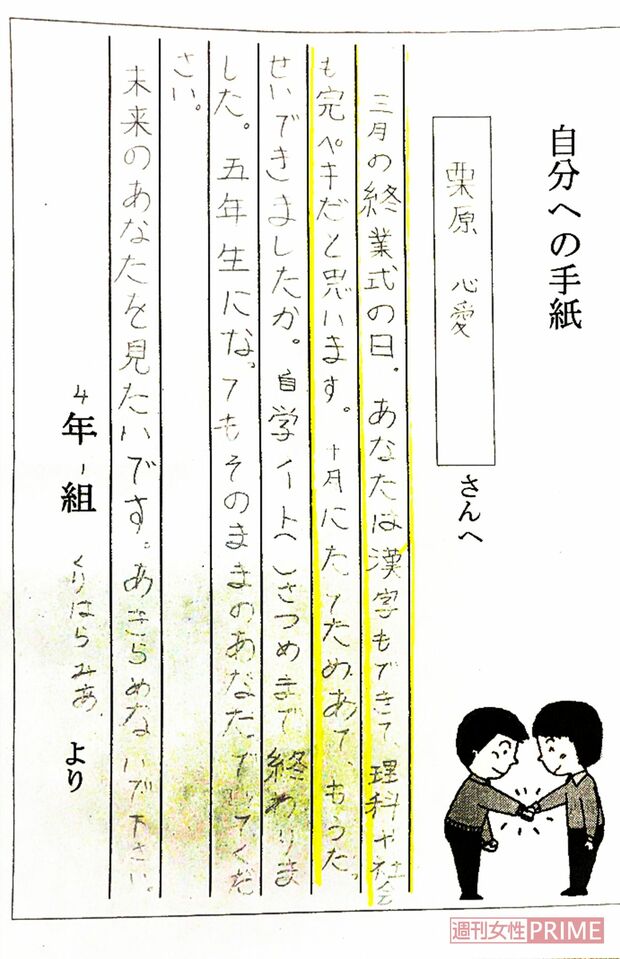 自分への手紙
栗原 心愛
さんへ
三月の終業式の日。あなたは漢字もできて、理科や社会
も完ペキだと思います。十月にたてためあて、もうた
せいできましたか。自学ノート
さつめまで終わりま
した。五年生になってもそのままのあなたでいてくだ
さい。
未来のあなたを見たいです。あきらめないで下さい。
4年1組
くりはらみあ
より
週刊女性PRIME